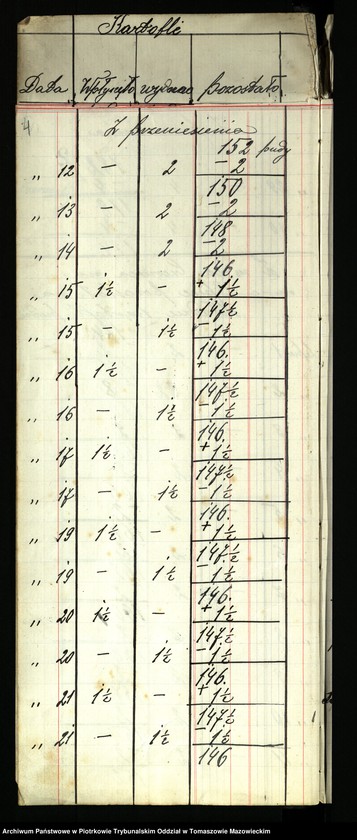 Kartofli
Data Wpłynęło wydano pozostało
4 Z przeniesienia
152 pudy
„ 12 — 2 — 2
150
„ 13 — 2 — 2
148
„ 14 — 2 — 2
146
„ 15 1½ — + 1½
147½
„ 15 — 1½ — 1½
146.
„ 16 1½ — + 1½
147½
„ 16 — 1½ — 1½
146.
„ 17 1½ — + 1½
147½
„ 17 — 1½ — 1½
146.
„ 19 1½ — + 1½
147½
„ 19 — 1½ — 1½
146.
„ 20 1½ — + 1½
147½
„ 20 — 1½ — 1½
146.
„ 21 1½ — + 1½
147½
„ 21 — 1½ — 1½
146
Archiwum Państwowe w Piotrkowie Trybunalskim Oddział w Tomaszowie Mazowieckim